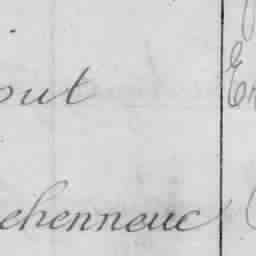 out
ehenneuc